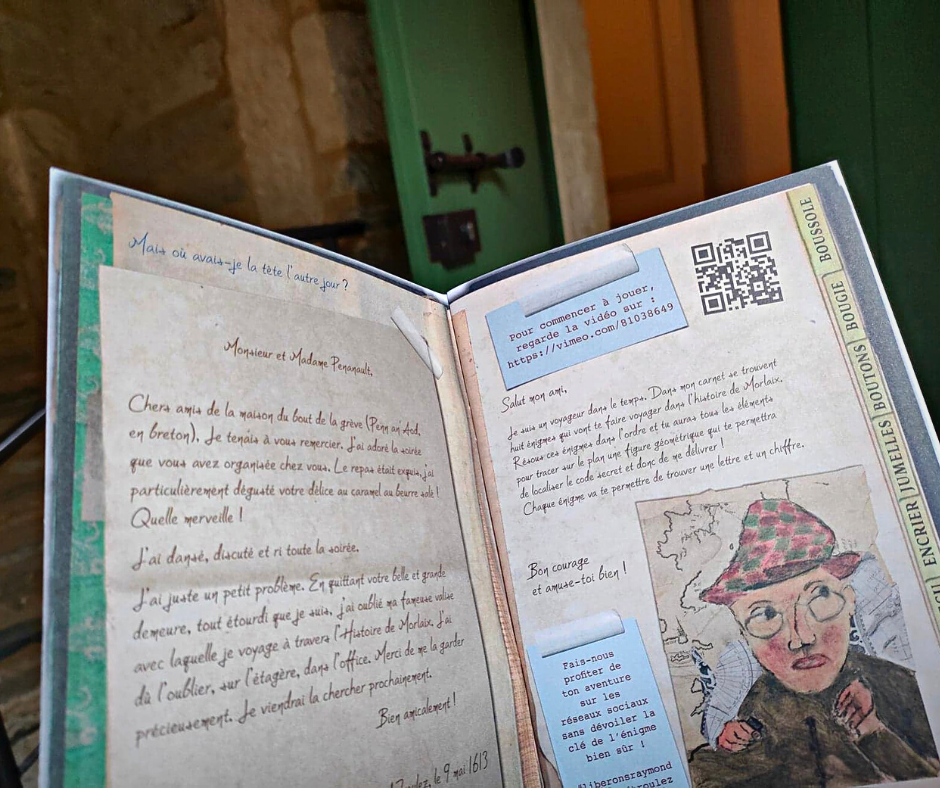 Mais où avais-je la tête l'autre jour ?
Monsieur et Madame Penanault,
Chers amis de la maison du bout de la grève (Penn an Aod,
en breton). Je tenais à vous remercier. J'ai adoré la soirée
que vous avez organisée chez vous. Le repas était exquis, j'ai
particulièrement dégusté votre délice au caramel au beurre salé !
Quelle merveille !
J'ai dansé, discuté et ri toute la soirée.
J'ai juste un petit problème. En quittant votre belle et grande
demeure, tout étourdi que je suis, j'ai oublié ma fameuse valise
avec laquelle je voyage à travers l'Histoire de Morlaix. J'ai
dû l'oublier, sur l'étagère, dans l'office. Merci de me la garder
précieusement. Je viendrai la chercher prochainement.
Bien amicalement !
le 9 mai 1613
Pour commencer à jouer,
regarde la vidéo sur :
https://vimeo.com/81038649
Salut mon ami,
Je suis un voyageur dans le temps. Dans mon carnet se trouvent
huit énigmes qui vont te faire voyager dans l'histoire de Morlaix.
Résous ces énigmes dans l'ordre et tu auras tous les éléments
pour tracer sur le plan une figure géométrique qui te permettra
de localiser le code secret et donc de me délivrer !
Chaque énigme va te permettre de trouver une lettre et un chiffre.
Bon courage
et amuse-toi bien !
Fais-nous
profiter de
ton aventure
sur les
réseaux sociaux
sans dévoiler la
clé de l'énigme
bien sûr !
#liberonsraymond
BOUSSOLE
BOUGIE
BOUTONS
JUMELLES
ENCRIER